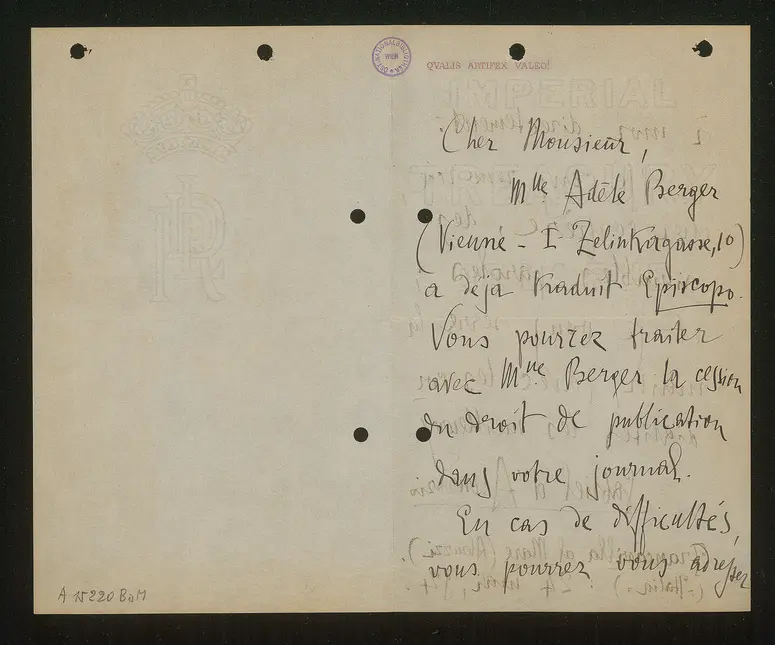 QVALIS ARTIFEX VALEO!
IMPERIAL
TREASURY
Cher Monsieur,
Mlle Adèle Berger
(Vienne - I. Zelinkagasse, 10)
a déjà traduit Episcopo.
Vous pourrez traiter
avec Mlle Berger la cession
du droit de publication
dans votre journal.
En cas de difficultés,
vous pourrez vous adresser
A 15220 BaM